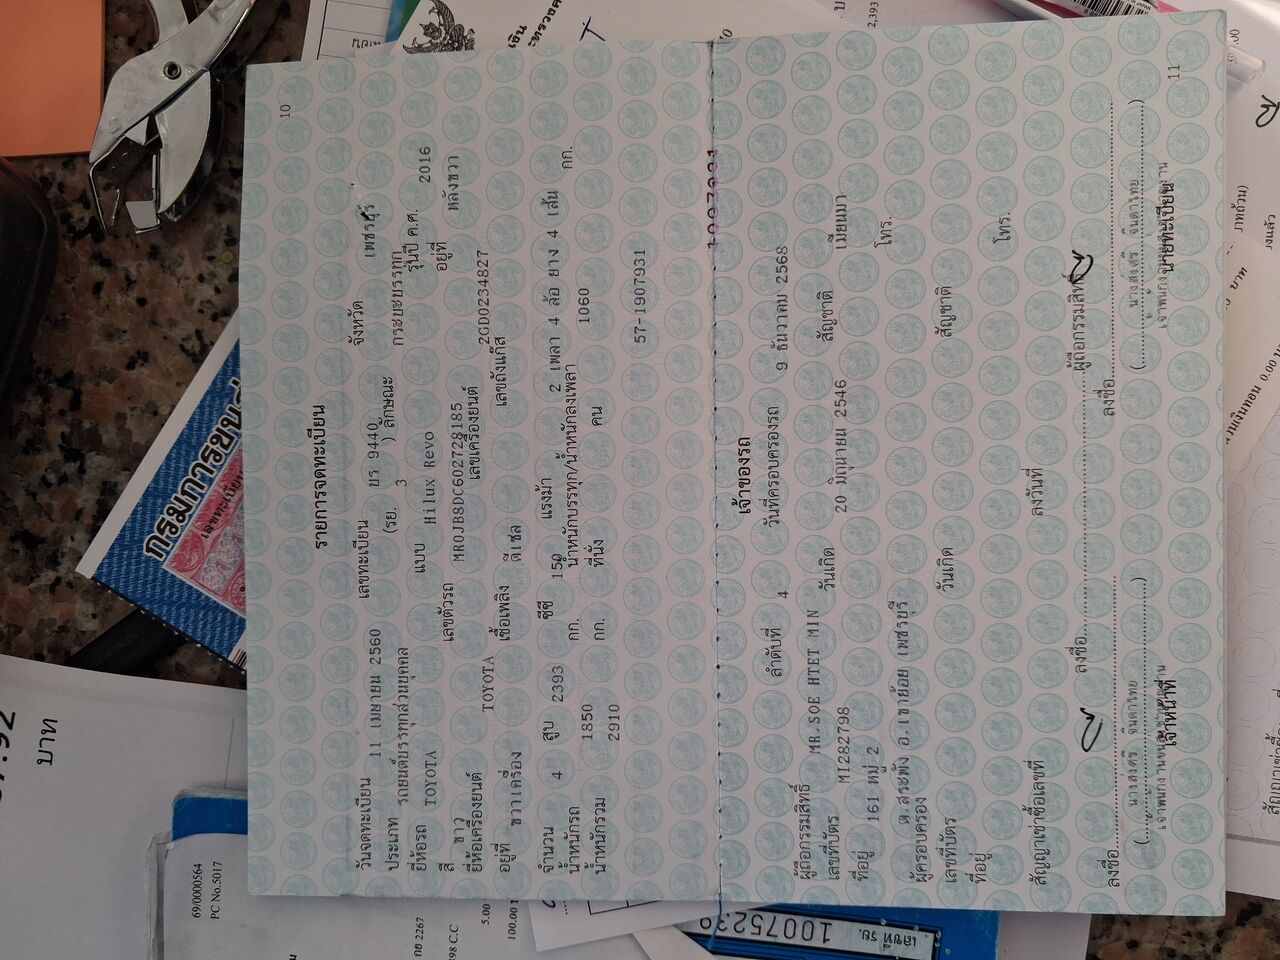 10
รายการจดทะเบียน
วันจดทะเบียน 11 เมษายน 2560 เลขทะเบียน ยร 9440 จังหวัด เพชรบุรี
ประเภท รถยนต์บรรทุกส่วนบุคคล (รย. 3 ) ลักษณะ กระบะบรรทุก
ยี่ห้อรถ TOYOTA แบบ Hilux Revo รุ่นปี ค.ศ. 2016
สี ขาว เลขตัวรถ MR0JB8DC602728185 อยู่ที่ หลังขวา
ยี่ห้อเครื่องยนต์ TOYOTA เลขเครื่องยนต์ 2GD0234827
อยู่ที่ ขวาเครื่อง เชื้อเพลิง ดีเซล เลขถังแก๊ส
จำนวน 4 สูบ 2393 ซีซี 150 แรงม้า 2 เพลา 4 ล้อ ยาง 4 เส้น
น้ำหนักรถ 1850 กก. น้ำหนักบรรทุก/น้ำหนักลงเพลา 1060 กก.
น้ำหนักรวม 2910 กก. ที่นั่ง คน
57-1907931
เจ้าของรถ
ลำดับที่ 4 วันที่ครอบครองรถ 9 ธันวาคม 2568
ผู้ถือกรรมสิทธิ์ MR.SOE HTET MIN
เลขที่บัตร MI282798 วันเกิด 20 มิถุนายน 2546 สัญชาติ เมียนมา
ที่อยู่ 161 หมู่ 2 โทร.
ต.สระพัง อ.เขาย้อย เพชรบุรี
ผู้ครอบครอง
เลขที่บัตร วันเกิด สัญชาติ
ที่อยู่ โทร.
สัญญาเช่าซื้อเลขที่ ลงวันที่
ลงชื่อ ผู้ถือกรรมสิทธิ์
ลงชื่อ ลงชื่อ
( นางสงศรี จินดาไทย ) ( นางสงศรี จินดาไทย )
เจ้าหน้าที่ นายทะเบียน
11
กรมการขนส่
เลขทะเบียน
69/0000564
PC No.5017
กธ 2267
398 C.C
5.00
บาท
เลขที่ รย.
2,393
บาทถ้วน)